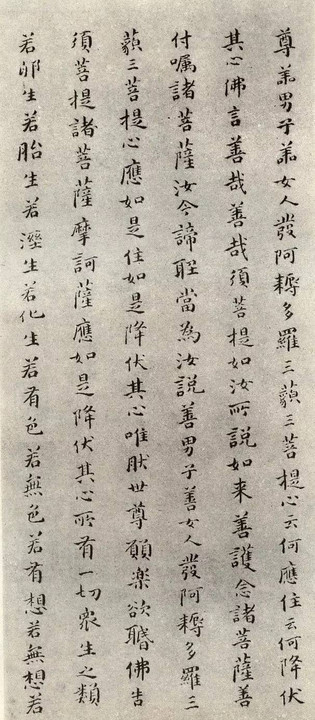 尊善男子善女人發阿耨多羅三藐三菩提心云何應住云何降伏
其心佛言善哉善哉須菩提如汝所說如来善護念諸菩薩善
付嘱諸菩薩汝今諦聽當為汝說善男子善女人發阿耨多羅三
藐三菩提心應如是住如是降伏其心唯然世尊願樂欲聞佛告
須菩提諸菩薩摩訶薩應如是降伏其心所有一切眾生之類
若卵生若胎生若溼生若化生若有色若無色若有想若無想若